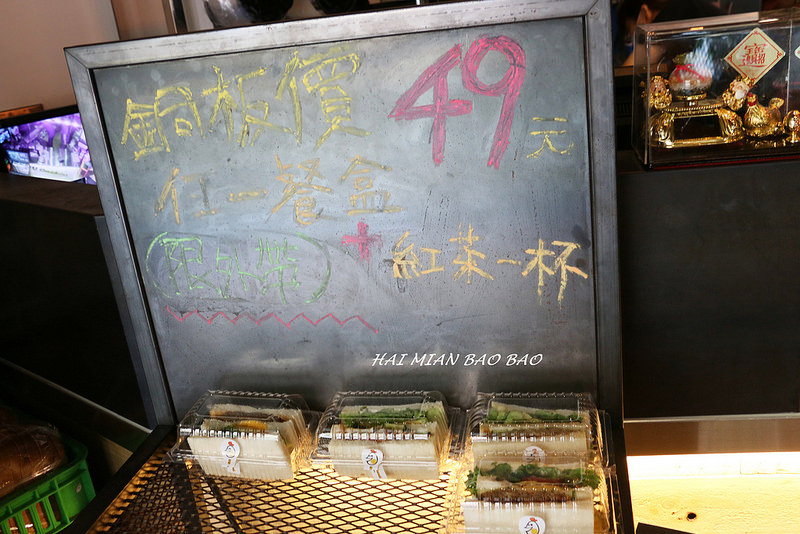 銅板價 49元
任一餐盒
限外帶 + 紅茶一杯
HAI MIAN BAO BAO